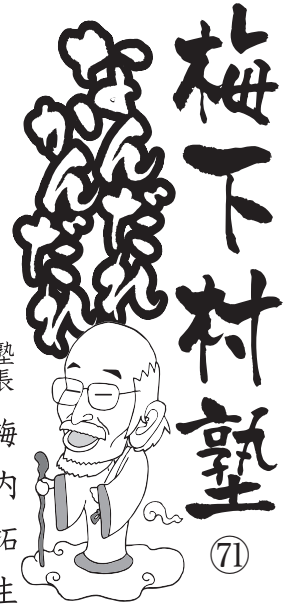 梅下村塾
71
なんだれ
かんだれ
塾長 梅内拓生